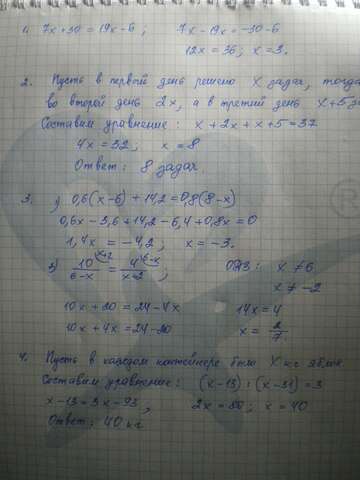 1. 7x+30 = 19x-6 ; 7x-19x=-30-6
12x = 36; x = 3.
2. Пусть в первый день решено X задач, тогда
во второй день 2x, а в третий день x+5
Составим уравнение: x + 2x + x + 5 = 37
4x = 32; x = 8
Ответ: 8 задач.
3. 0,6(x-6)+14,2=0,8(8-x)
0,6x-3,6+14,2-6,4+0,8x=0
1,4x = -4,2; x = -3.
10/(6-x) = 4/(x+2) ; ОДЗ: x ≠ 6
x ≠ -2
10x + 20 = 24-4x 14x = 4
10x + 4x = 24-20 x = 2/7.
4. Пусть в каждом контейнере было X кг яблок
Составим уравнение: (x-13) : (x-31) = 3
x-13 = 3x-93, 2x = 80; x = 40
Ответ: 40 кг